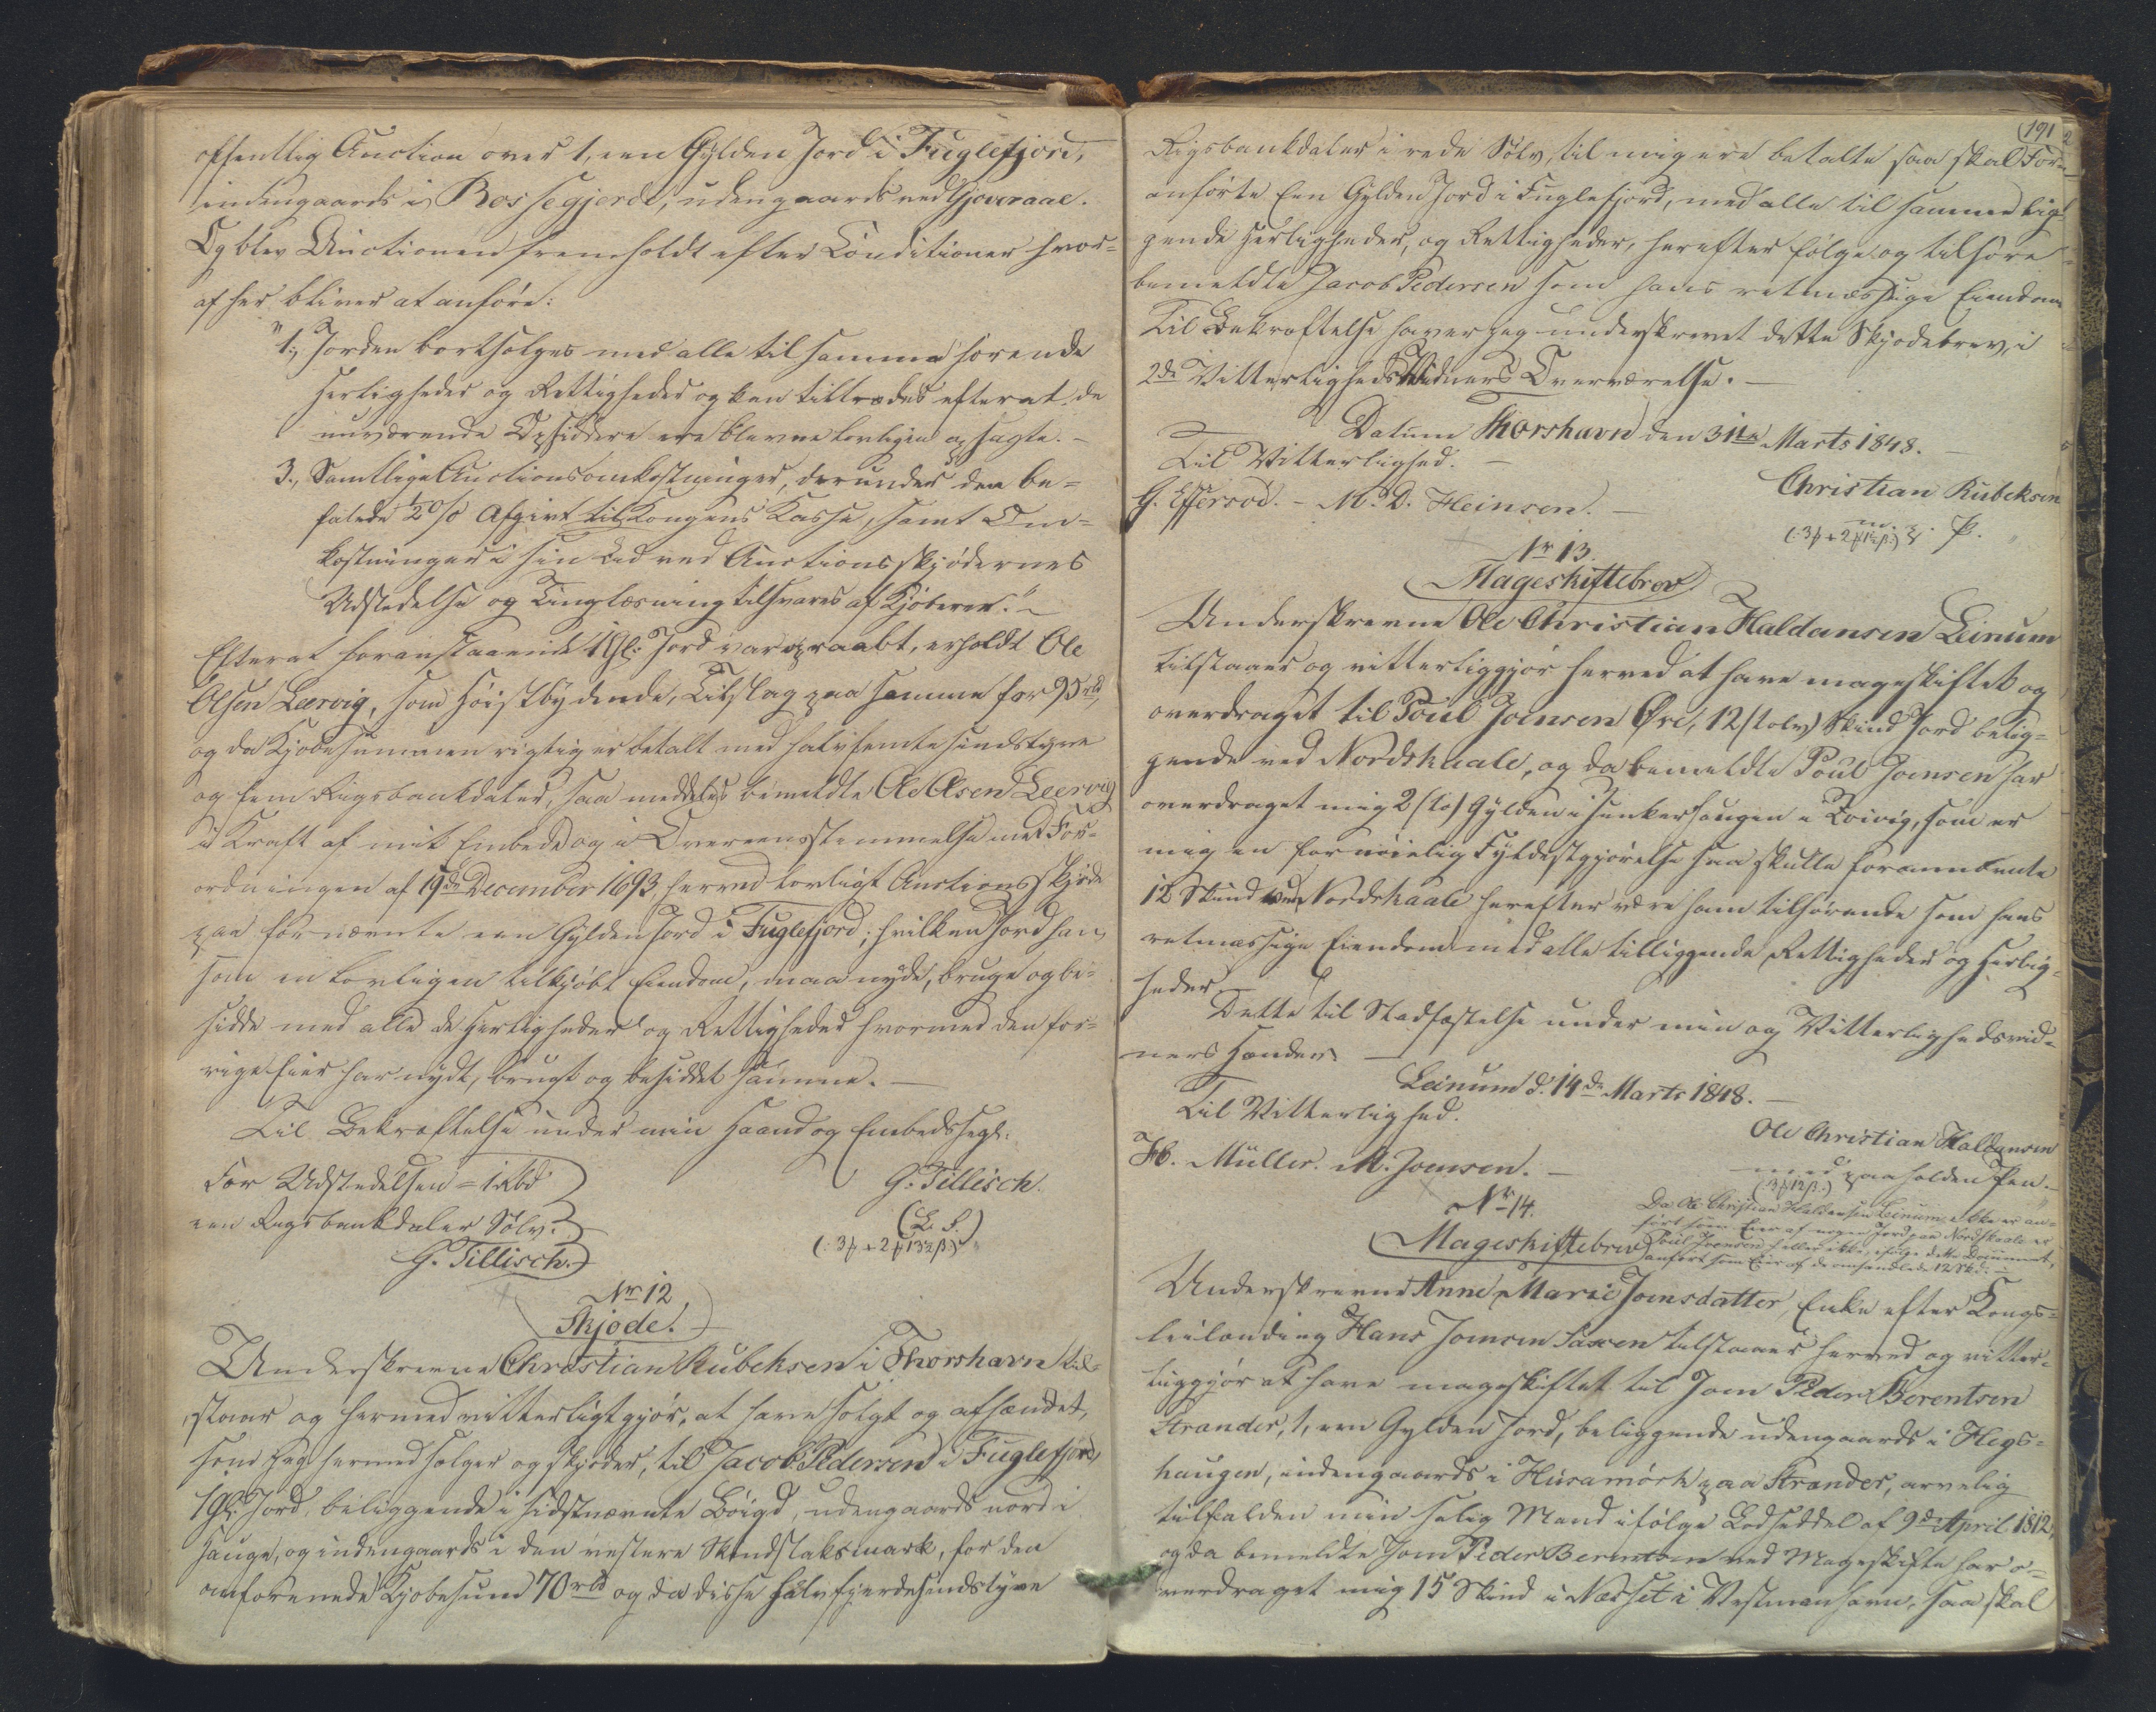 offentlig Auction over 1, een Gylden Jord i Fuglefjord,
indengaards i Bossegjerde, udengaards ved Gjoveraae.
Og blev Auctionen fremholdt efter Conditioner hvor-
af her bliver at anføre:
"1., Jorden bortsælges med alle til samme hørende
Herligheder og Rettigheder og kan tiltrædes efterat de
nuværende Opsiddere ere blevne lovligen opsagte. -
3., Samtlige Auctionsomkostninger, derunder den be-
falede ½ % Afgivt til Kongens Kasse, samt Om-
kostninger i sin Tid ved Auctionsskjødernes
Udstedelse og Tinglæsning tilsvares af Kjøberen." -
Efterat foranstaaende 1 Gl. Jord var opraabt, erholdt Ole
Olsen Leervig, som Høistbydende, Tilslag paa samme for 95 rbd,
og da Kjøbesummen rigtig er betalt med halvfemtesindstyve
og fem Rigsbankdaler, saa meddeles bemeldte Ole Olsen Leervig
i Kraft af mit Embede og i Overeensstemmelse med For-
ordningen af 19de December 1693, herved lovligt Auctions Skjøde
paa fornævnte een Gylden Jord i Fuglefjord; hvilken Jord han,
som en lovligen tilkjøbt Eiendom, maa nyde, bruge og be-
sidde med alle de Herligheder og Rettigheder hvormed den for-
rige Eier har nydt, brugt og besiddet samme. -
Til Bekræftelse under min Haand og Embedssegl.
For Udstedelsen = 1 Rbd
een Rigsbankdaler Sølv.
G. Tillisch.
G. Tillisch.
(L. S.)
Nr 12
Skjøde.
Underskrevne Christian Rubeksen i Thorshavn til-
staar og hermed vitterligtgjør, at have solgt og afhændet,
som jeg hermed sælger og skjøder, til Jacob Pedersen i Fuglefjord,
1 Gl. Jord, beliggende i sidstnævnte Bøigd, udengaards nord i
Hauge, og indengaards i den vestere Skindstaksmark, for den
omforenede Kjøbesum 70 rbd og da disse halvfjerdesindstyve
191
Rigsbankdaler i rede Sølv, til mig ere betalte saa skal For-
anførte Een Gylden Jord i Fuglefjord, med alle til samme lig-
gende Herligheder, og Rettigheder, herefter følge og tilhøre
bemeldte Jacob Pedersen som hans retmæssige Eiendom
Til Bekræftelse haver jeg underskrevet dette Skjødebrev, i
2de Vitterligheds Vidners Overværelse. -
Datum Thorshavn den 31te Marts 1848.
Til Vitterlighed. -
Christian Rubeksen
m. . P.
G. Effersøe. - M. D. Heinsen. -
Nr 13.
Mageskiftebrev
Underskrevne Ole Christian Haldansen Leinum
tilstaaer og vitterliggjør herved at have mageskiftet og
overdraget til Poul Joensen Øre, 12 (tolv) Skind Jord belig-
gende ved Nordskaale, og da bemeldte Poul Joensen har
overdraget mig 2 (to) Gylden i Hunkerhaugen i Qvivig, som er
mig en fornøielig Fyldestgjørelse saa skulle forommeldte
12 Skind ved Nordskaale herefter være ham tilhørende som hans
retmæssige Eiendom med alle tilliggende Rettigheder og Herlig-
heder.
Dette til Stadfæstelse under min og Vitterlighedsvid-
ners Hænder. -
Leinum d. 14de Marts 1848. -
Til Vitterlighed.
Ole Christian Haldansen
med paaholden Pen. -
Fb. Müller. M. Joensen. -
Nr 14.
Mageskiftebrev
Da Ole Christian Haldansen Leinum ikke er an-
ført som Eier af nogen Jord paa Nordskaale er
Poul Joensen heller ikke, ifølge dette Document,
anført som Eier af de omhandlede 12 Skd. -
Underskrevne Anne Marie Joensdatter, Enke efter Kongs-
leilænding Hans Joensen Saxen tilstaaer herved og vitter-
liggjør at have mageskiftet til Joen Peder Berentsen
Strander, 1, een Gylden Jord, beliggende udengaards i Heys-
haugen, indengaards i Husamørk paa Strander, arvelig
tilfalden min salig Mand ifølge Lodseddel af 9de April 1812,
og da bemeldte Joen Peder Berentsen ved Mageskifte har o-
verdraget mig 15 Skind i Nesset i Vestmanhavn, saa skal